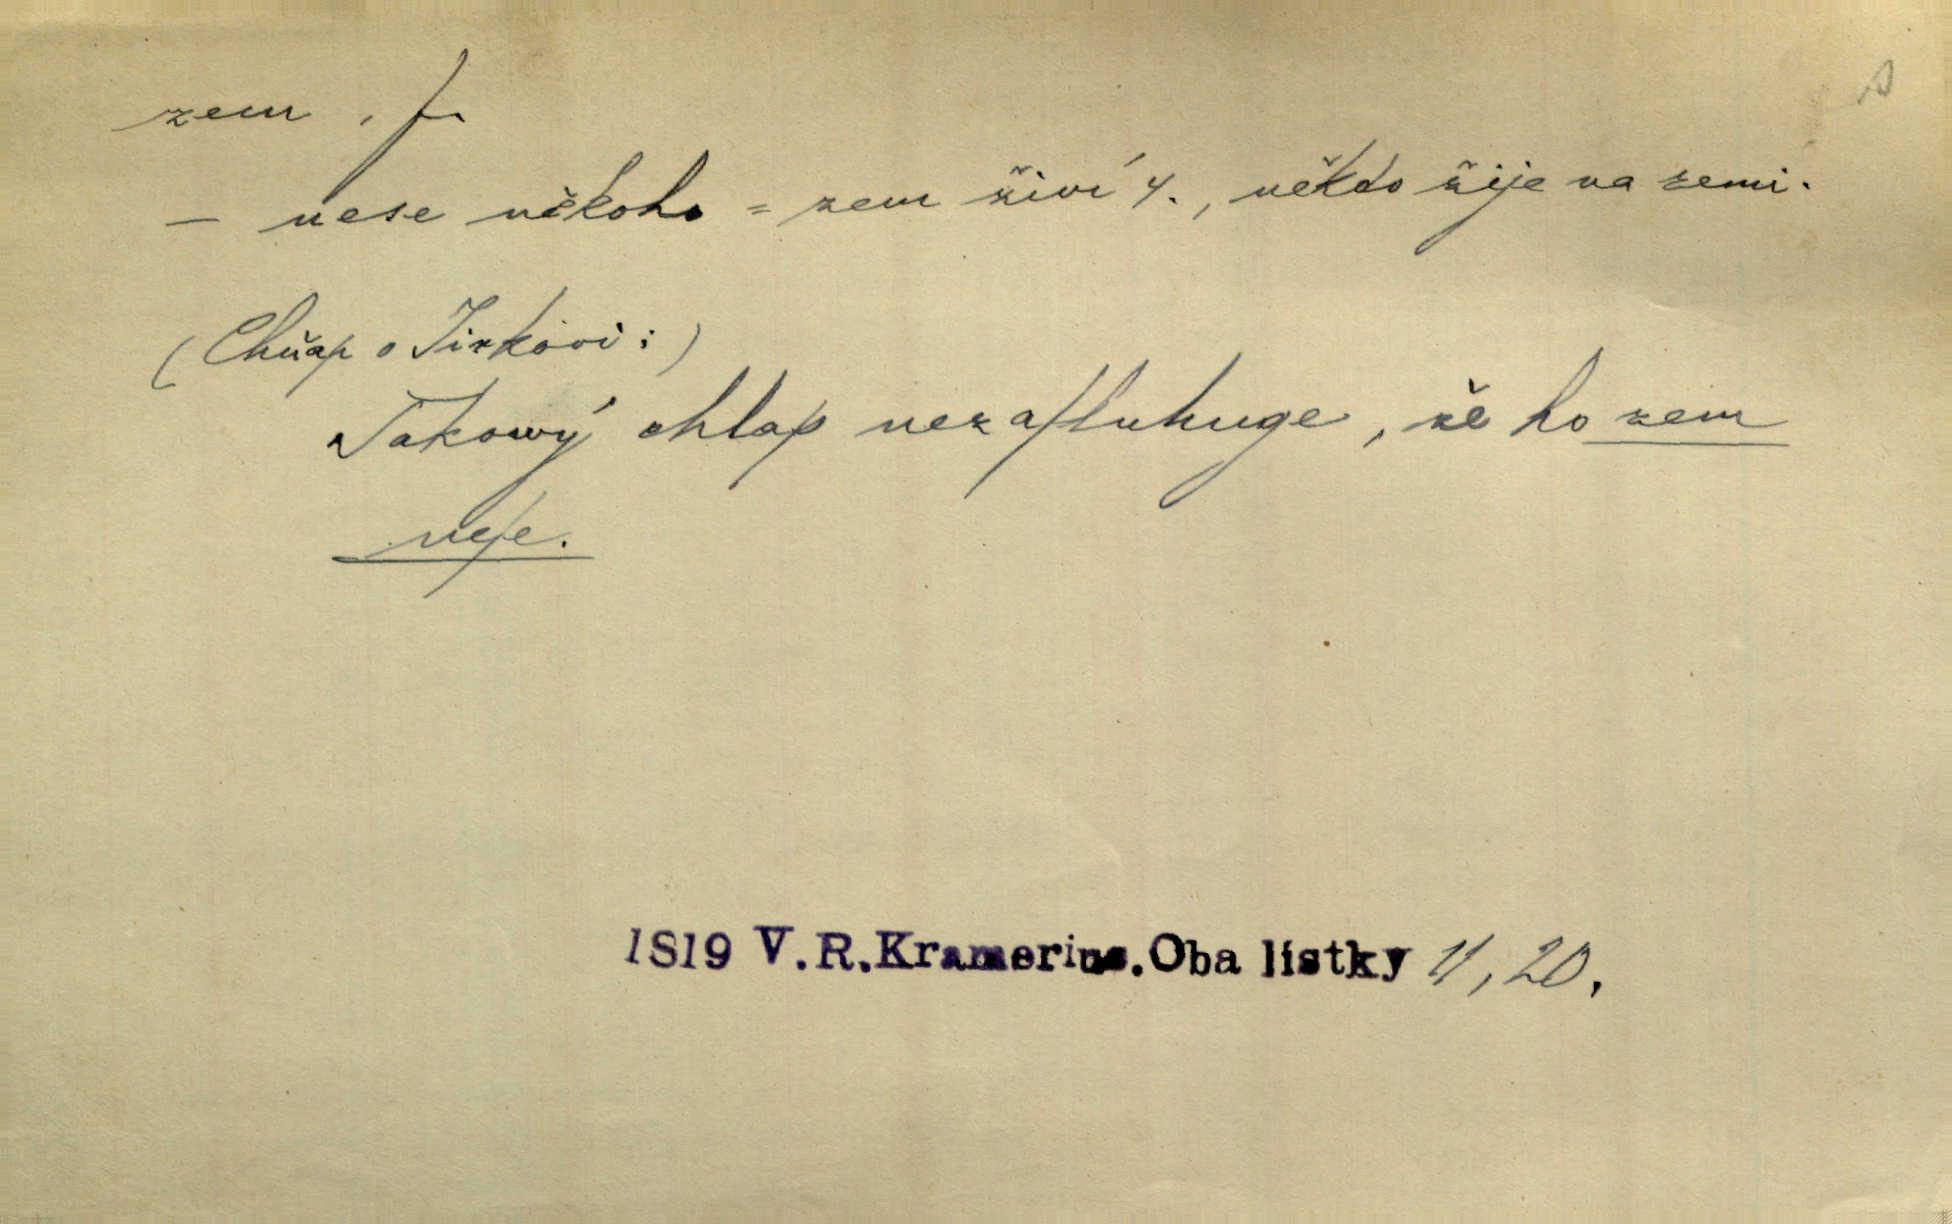 zem, f.
— nese někoho = zem živí ч., někdo žije na zemi.
(Chňap o Jirkovi:)
Takowý chlap nezaſluhuge, že ho zem
neſe.
1819 V.R.Kramerius.Oba lístky 11, 20.